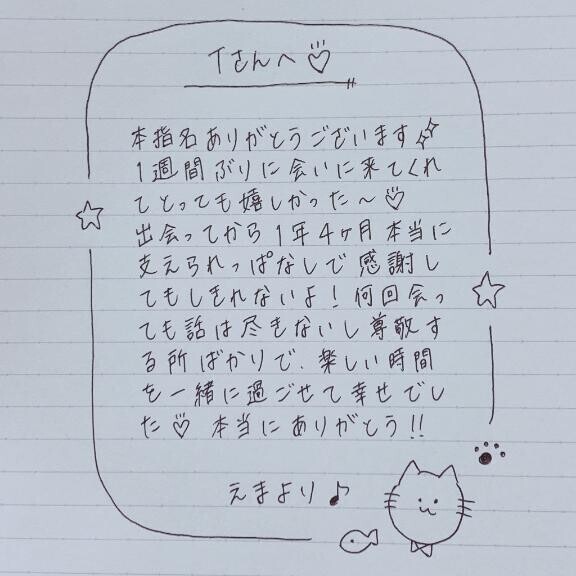 Tさんへ♡
本指名ありがとうございます✨
1週間ぶりに会いに来てくれ
てとっても嬉しかった〜♡
出会ってから1年4ヶ月本当に
支えられっぱなしで感謝し
てもしきれないよ！何回会っ
ても話は尽きないし尊敬す
る所ばかりで、楽しい時間
を一緒に過ごせて幸せでし
た♡ 本当にありがとう!!
えまより♪